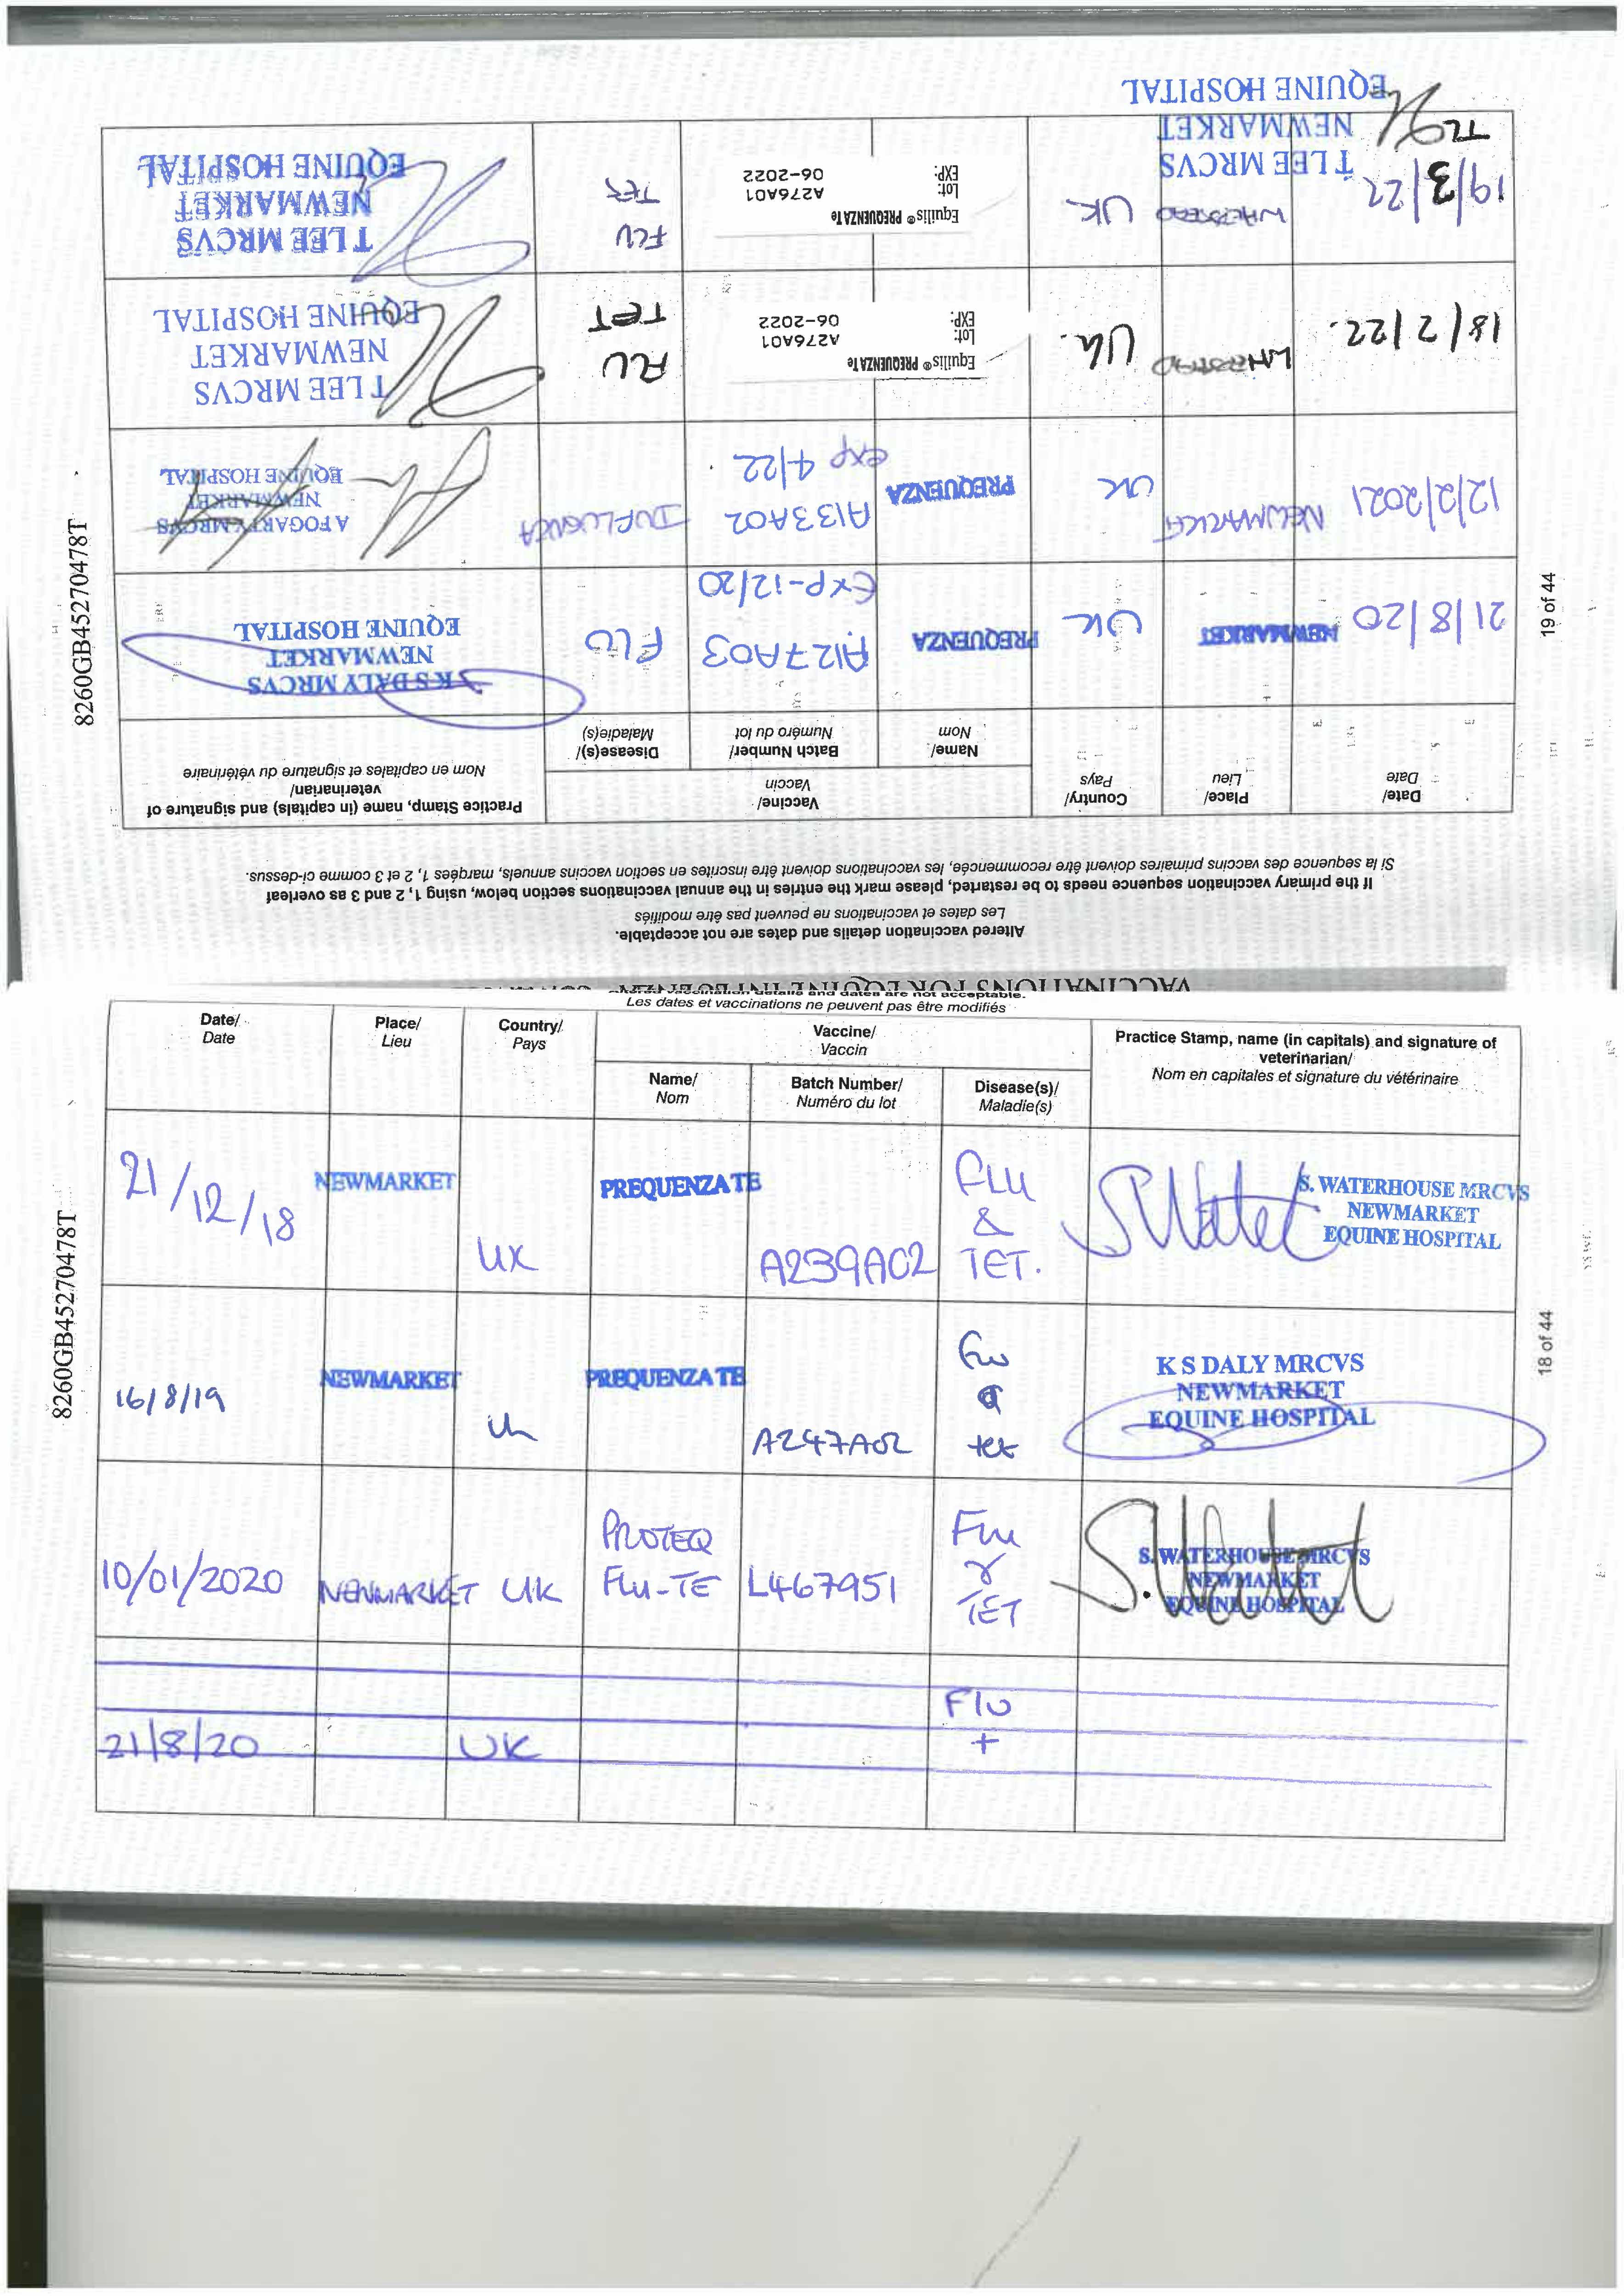 VACCINATIONS FOR EQUINE INFLUENZA
Altered vaccination details and dates are not acceptable.
Les dates et vaccinations ne peuvent pas être modifiés
If the primary vaccination sequence needs to be restarted, please mark the entries in the annual vaccinations section below, using 1, 2 and 3 as overleaf
Si la séquence des vaccins primaires doivent être recommencée, les vaccinations doivent être inscrites en section vaccins annuels, marqées 1, 2 et 3 comme ci-dessus.
Date/ Place/ Country/ Vaccine/ Practice Stamp, name (in capitals) and signature of
Date Lieu Pays Vaccin veterinarian/
Nom en capitales et signature du vétérinaire
Name/ Batch Number/ Disease(s)/
Nom Numéro du lot Maladie(s)
21/8/20 NEWMARKET UK PREQUENZA A127A03 FLU K S DALY MRCVS
NEWMARKET
EQUINE HOSPITAL
Exp-12/20
12/2/2021 NEWMARKET UK PREQUENZA A133A02 INFLUENZA A FOGARTY MRCVS
NEWMARKET
EQUINE HOSPITAL
exp 4/22
18/2/22. UK. Equilis® PREQUENZA Te FLU T LEE MRCVS
Lot: A276A01 TET NEWMARKET
EXP: 06-2022 EQUINE HOSPITAL
19/3/22 UK Equilis® PREQUENZA Te FLU T LEE MRCVS
Lot: A276A01 TET NEWMARKET
EXP: 06-2022 EQUINE HOSPITAL
TL
T LEE MRCVS
NEWMARKET
EQUINE HOSPITAL
8260GB45270478T
19 of 44
Altered vaccination details and dates are not acceptable.
Les dates et vaccinations ne peuvent pas être modifiés
Date/ Place/ Country/ Vaccine/ Practice Stamp, name (in capitals) and signature of
Date Lieu Pays Vaccin veterinarian/
Nom en capitales et signature du vétérinaire
Name/ Batch Number/ Disease(s)/
Nom Numéro du lot Maladie(s)
21/12/18 NEWMARKET UK PREQUENZA TE A239A02 FLU
&
TET.
S. WATERHOUSE MRCVS
NEWMARKET
EQUINE HOSPITAL
16/8/19 NEWMARKET UK PREQUENZA TE A247A02 Flu
&
tet
K S DALY MRCVS
NEWMARKET
EQUINE HOSPITAL
10/01/2020 NEWMARKET UK PROTEQ
FLU-TE L467951 Flu
&
TET
S. WATERHOUSE MRCVS
NEWMARKET
EQUINE HOSPITAL
21/8/20 UK Flu
+
8260GB45270478T
18 of 44